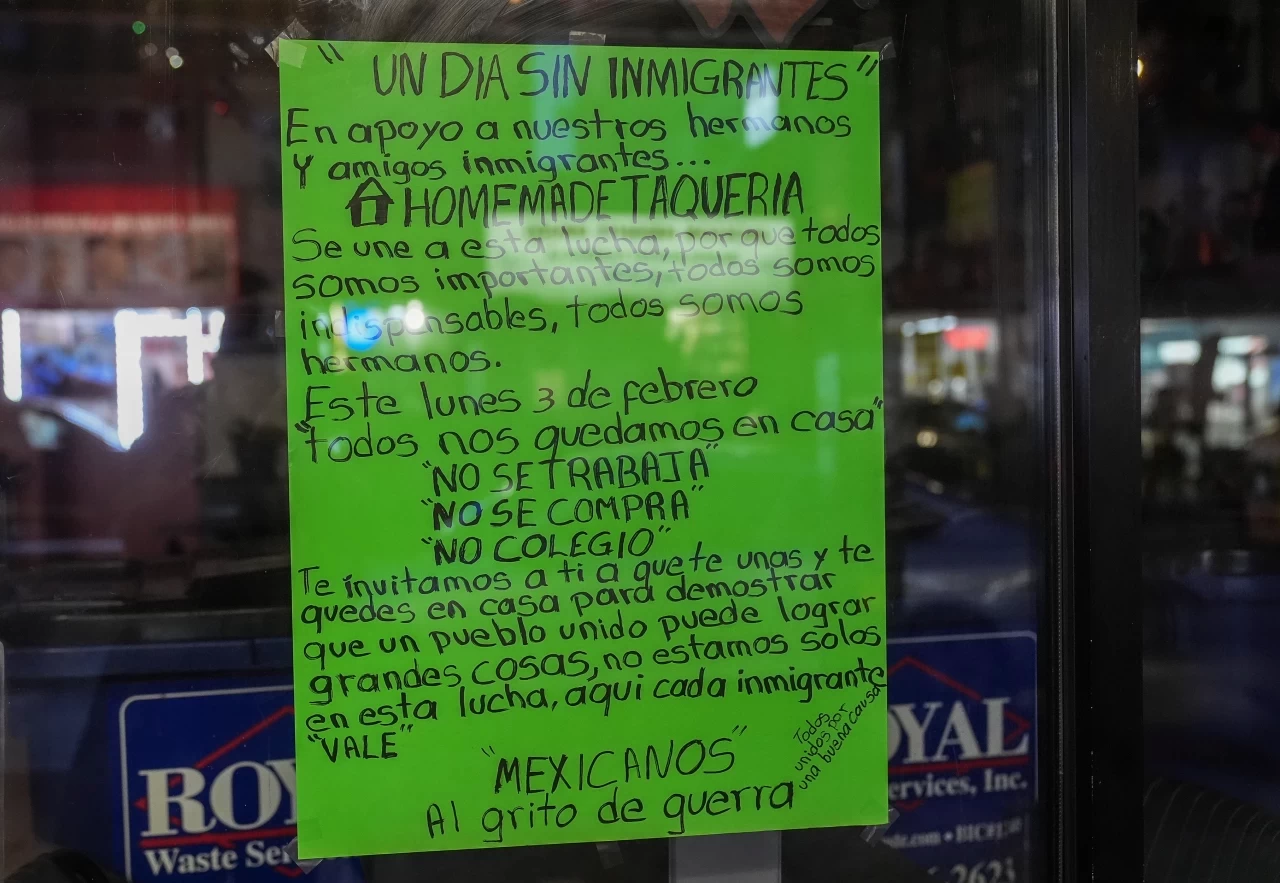 "UN DIA SIN INMIGRANTES"
En apoyo a nuestros hermanos
Y amigos inmigrantes...
HOMEMADE TAQUERIA
Se une a esta lucha, por que todos
somos importantes, todos somos
indispensables, todos somos
hermanos.
Este lunes 3 de febrero
"todos nos quedamos en casa"
"NO SE TRABAJA"
"NO SE COMPRA"
"NO COLEGIO"
Te invitamos a ti a que te unas y te
quedes en casa para demostrar
que un pueblo unido puede lograr
grandes cosas, no estamos solos
en esta lucha, aqui cada inmigrante
"VALE"
"MEXICANOS"
Al grito de guerra
Todos
unidos por
una buena causa
ROY
Waste Se
OYAL
ervices, Inc.
2623